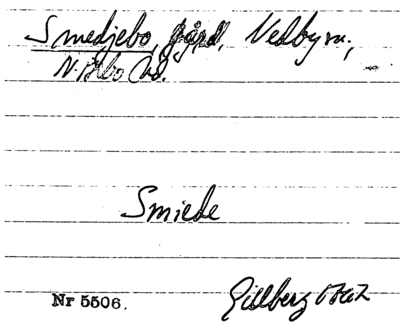 Smedjebo, gård, Vedby sn.,
N. Åsbo hd.
Smiede
Nr 5506.
Gillberg